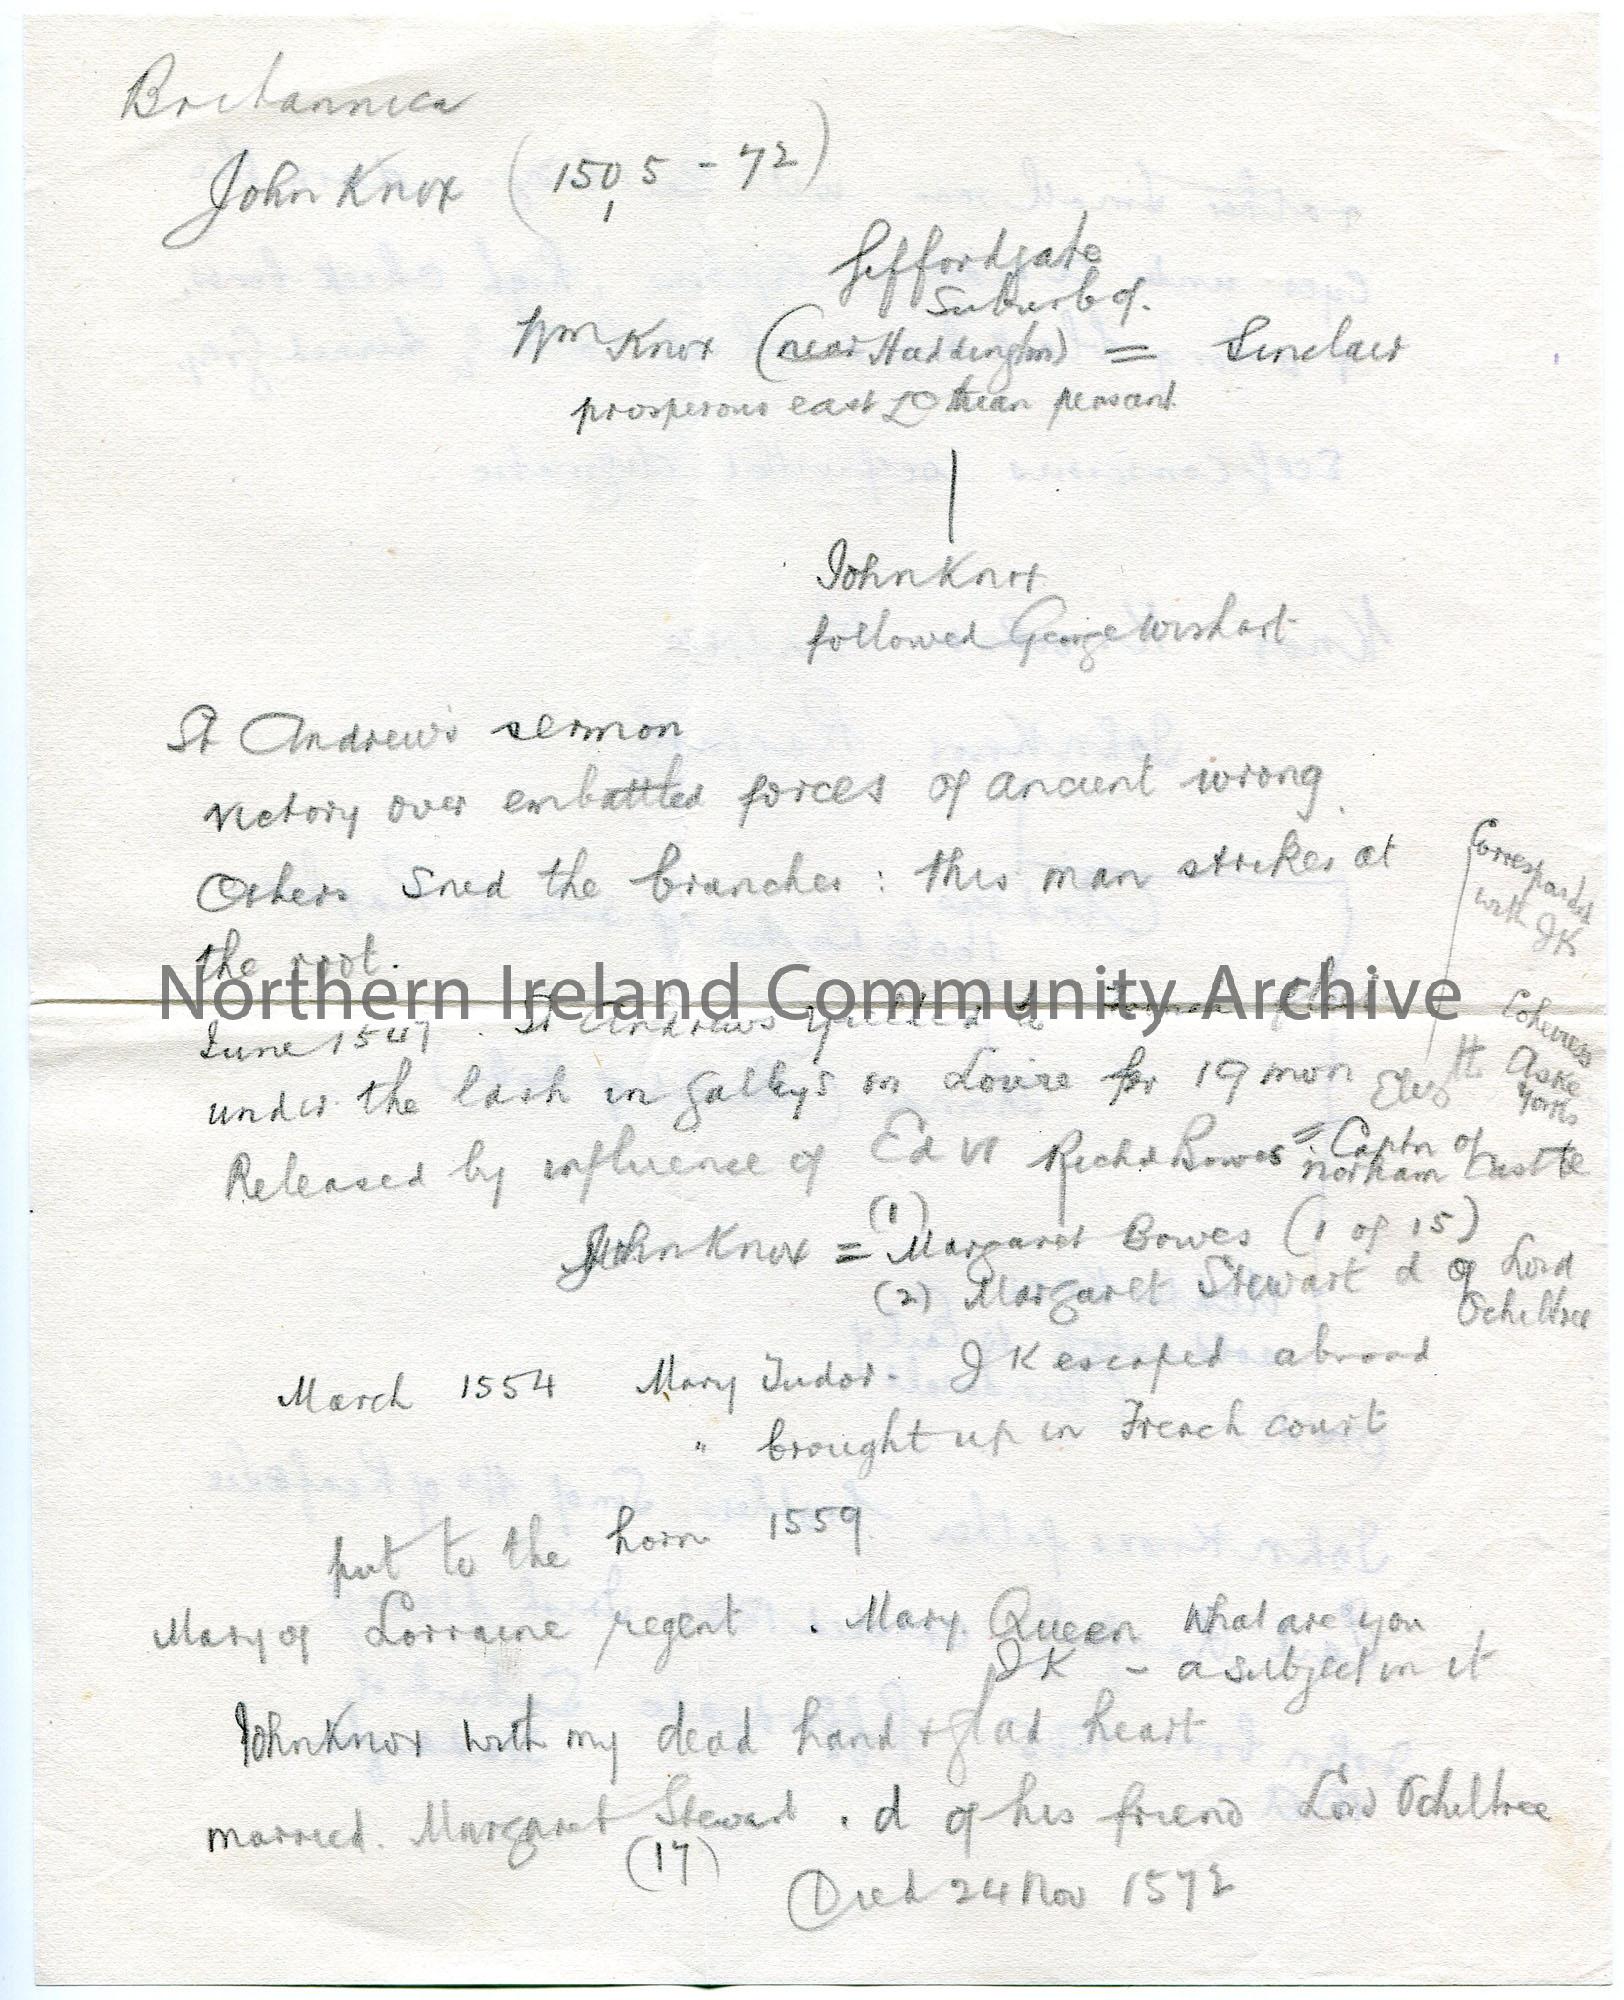 Britannica
John Knox (1505 - 72)
1
Giffordgate
Suburb of.
Wm Knox (near Haddington) = Sinclair
prosperous east Lothian peasant
John Knox
followed George Wishart
St Andrew's sermon
victory over embattled forces of ancient wrong.
Others Sned the branches : this man strikes at
the root.
Northern Ireland Community Archive
June 1547. St Andrews yielded to French fleet
under the lash in galleys on Loire for 19 mon
Released by influence of Ed VI
Corresponded
with JK
Eliz
Coheiress
Aske
Yorks
Richd Bowes = Captn of
Norham Castle
John Knox = (1) Margaret Bowes (1 of 15)
(2) Margaret Stewart d of Lord
Ocheltree
March 1554 Mary Tudor. JK escaped abroad
" brought up in French court
put to the horn 1559
Mary of Lorraine regent . Mary. Queen What are you
JK - a subject in it
John Knox with my dead hand & glad heart
married. Margaret Stewart . d of his friend Lord Ocheltree
(17)
Died 24 Nov 1572